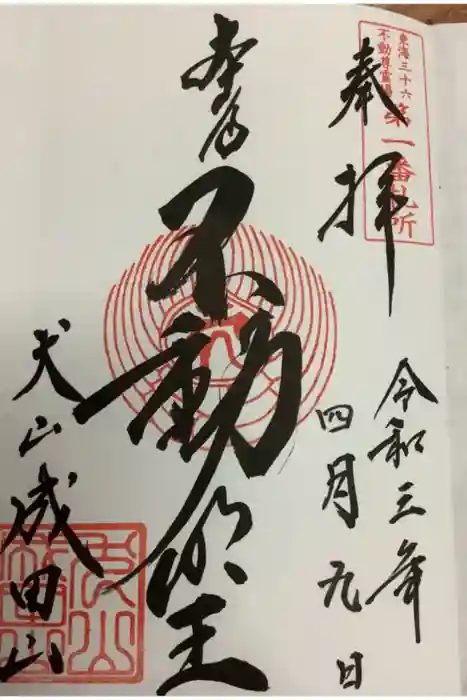 奉拝
東海三十六
不動尊霊場
第一番札所
令和三年
四月九日
本尊
不動明王
犬山成田山